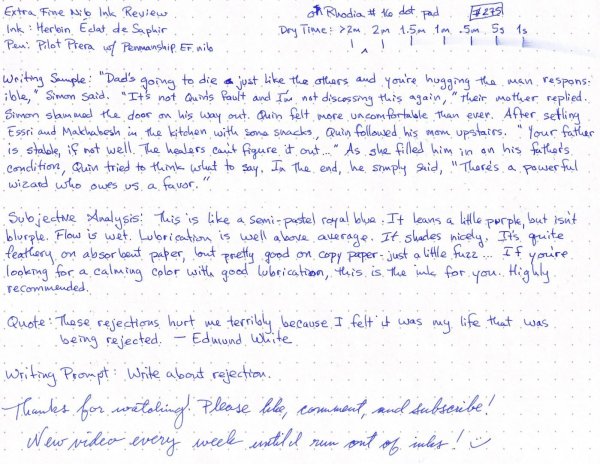 Extra Fine Nib Ink Review on Rhodia #16 dot pad #275
Ink: Herbin Éclat de Saphir Dry Time: >2m 2m 1.5m 1m .5m 5s 1s
Pen: Pilot Prera w/ Penmanship EF nib
Writing Sample: "Dad's going to die just like the others and you're hugging the man respons-
ible," Simon said. "It's not Quin's fault and I'm not discussing this again," their mother replied.
Simon slammed the door on his way out. Quin felt more uncomfortable than ever. After setting
Essri and Makhabesh in the kitchen with some snacks, Quin followed his mom upstairs. "Your father
is stable, if not well. The healers can't figure it out..." As she filled him in on his father's
condition, Quin tried to think what to say. In the end, he simply said, "There's a powerful
wizard who owes us a favor."
Subjective Analysis: This is like a semi-pastel royal blue. It leans a little purple, but isn't
blurple. Flow is wet. Lubrication is well above average. It shades nicely. It's quite
feathery on absorbent paper, but pretty good on copy paper - just a little fuzz... If you're
looking for a calming color with good lubrication, this is the ink for you. Highly
recommended.
Quote: These rejections hurt me terribly because I felt it was my life that was
being rejected. — Edmund White
Writing Prompt: Write about rejection.
Thanks for watching! Please like, comment, and subscribe!
New video every week until I run out of inks!